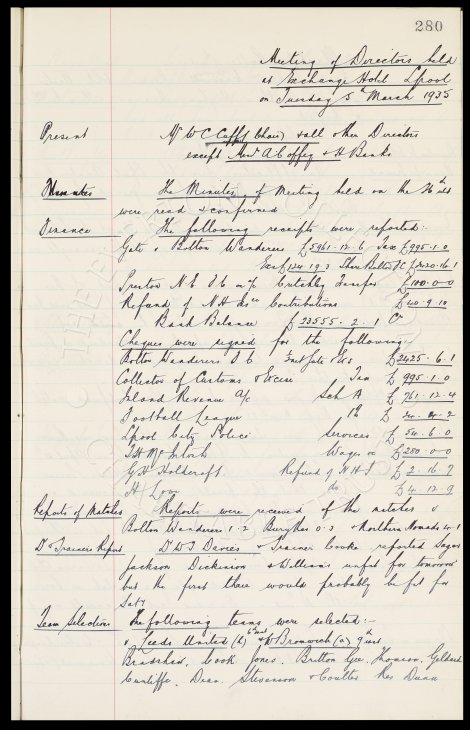 280
Meeting of Directors held
at Exchange Hotel Lpool
on Tuesday 5th March 1935
Present Mr W C Cuff (Chair) & all other Directors
except Messrs A Coffey & H Banks
Minutes The Minutes of Meeting held on the 26th ult
were read & confirmed
Finance The following receipts were reported:-
Gate v Bolton Wanderers £5961.12.6 Tax £995.1.0
Exs £124.19.3 Share Bolton F C £2420.16.1
Preston N E F C a/c Critchley Transfer £100.0.0
Refund of N H Contributions £40.9.10
Bank Balance £23555.2.1 Cr
Cheques were signed for the following:
Bolton Wanderers F C Gate & Exs £2425.6.1
Collector of Customs & Excise Tax £995.1.0
Inland Revenue a/c Sch A £761.12.4
Football League
Lpool City Police Services £54.6.0
Wages £250.0.0
G H Holdcroft Refund of N H I £2.16.7
H Lowe do £4.12.9
Reports of Matches Reports were received of the matches v
Bolton Wanderers 1-2 Bury Res 0-3 & Northern Nomads 4-1
Dr & Trainers Report Dr W J Davies & Trainer Cooke reported Sagar
Jackson Dickinson & Williams unfit for tomorrow
but the first three would probably be fit for
Saty
Team Selection The following teams were selected:-
v Leeds United (h) 6th inst & W Bromwich (a) 9th inst
Bradshaw, Cook Jones, Britton Gee, Thomson, Geldard
Cunliffe, Dean, Stevenson & Coulter Res Dunn